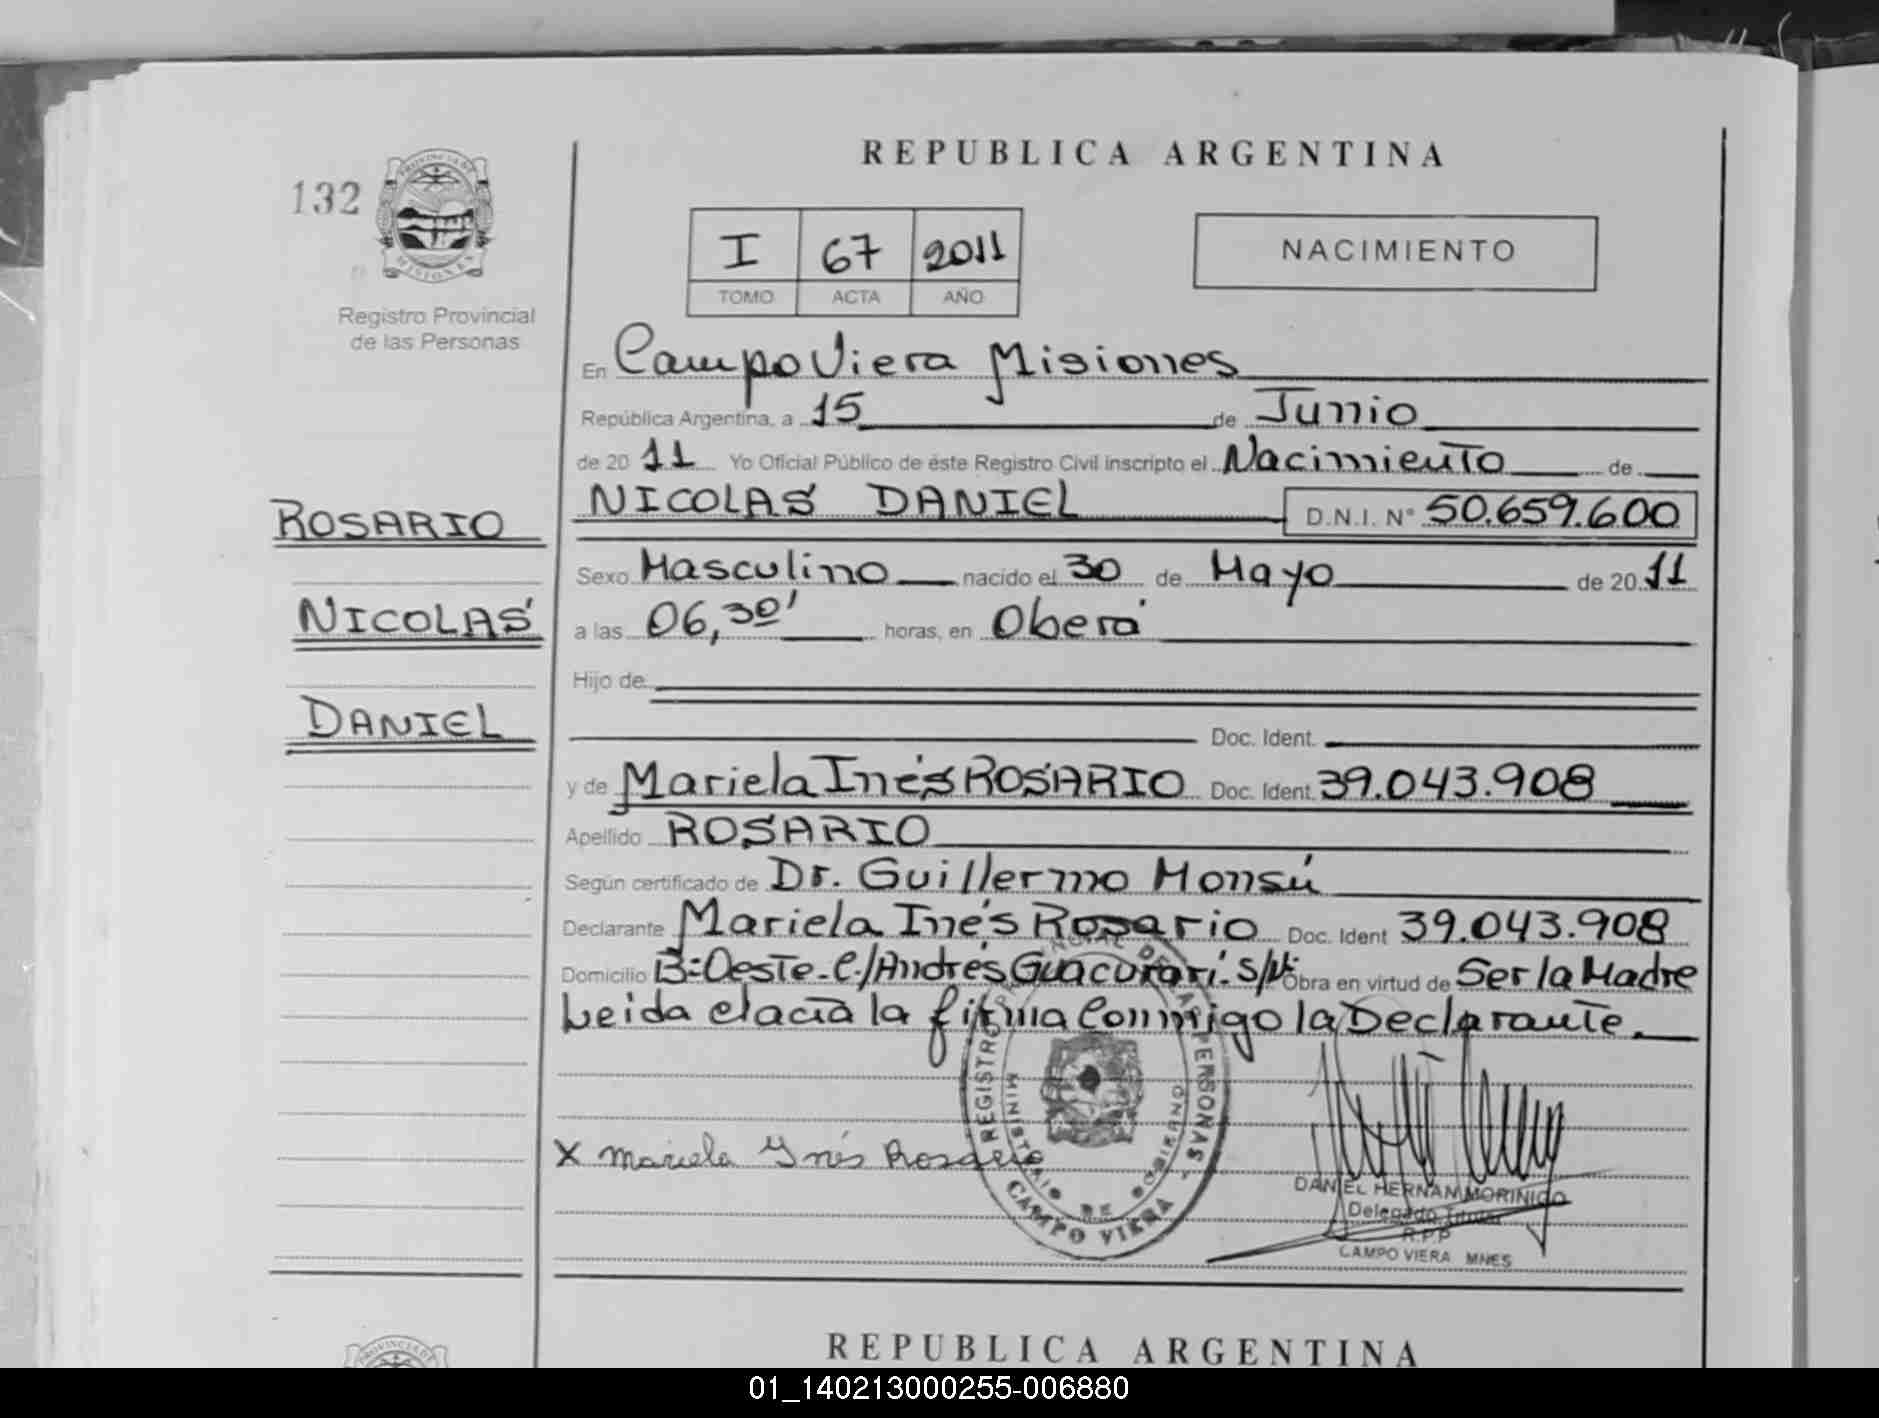 REPUBLICA ARGENTINA
132
PROVINCIA DE
MISIONES
Registro Provincial
de las Personas
I 67 2011
TOMO ACTA AÑO
NACIMIENTO
En Campo Viera Misiones
República Argentina, a 15 de Junio
de 20 11 Yo Oficial Público de éste Registro Civil inscripto el Nacimiento de
NICOLAS DANIEL D.N.I. N° 50.659.600
ROSARIO
NICOLAS
DANIEL
Sexo Masculino nacido el 30 de Mayo de 20 11
a las 06,30' horas, en Oberá
Hijo de
Doc. Ident.
y de Mariela Inés ROSARIO Doc. Ident. 39.043.908
Apellido ROSARIO
Según certificado de Dr. Guillermo Monsú
Declarante Mariela Inés Rosario Doc. Ident 39.043.908
Domicilio B: Oeste - C./Andrés Guacurarí. S/N: Obra en virtud de Ser la Madre
Leida el acta la firma Conmigo la Declarante.
X Mariela Ynés Rosario
REGISTRO PROVINCIAL DE LAS PERSONAS -
MINISTERIO DE GOBIERNO
CAMPO VIERA
DANIEL HERNAN MORINIGO
Delegado Titular
R.P.P
CAMPO VIERA MNES
PROVINCIA DE
REPUBLICA ARGENTINA
01_140213000255-006880